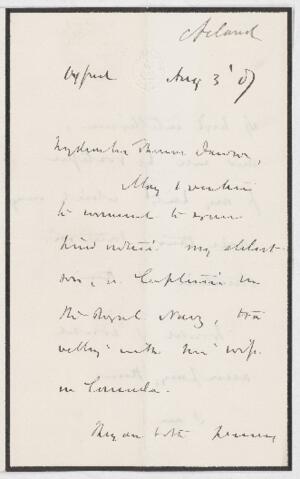 Acland
Oxford Aug 3 '87
My dear Sir William Dawson,
May I venture
to commend to your
kind notice my eldest
son, a Captain in
the Royal Navy, tra
velling with his wife
in Canada.
They are both